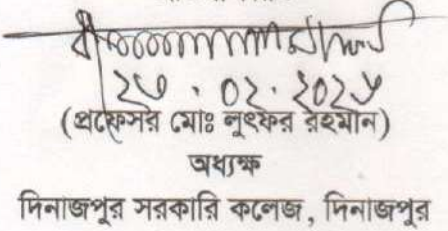 (প্রফেসর মোঃ লুৎফর রহমান)
অধ্যক্ষ
দিনাজপুর সরকারি কলেজ, দিনাজপুর